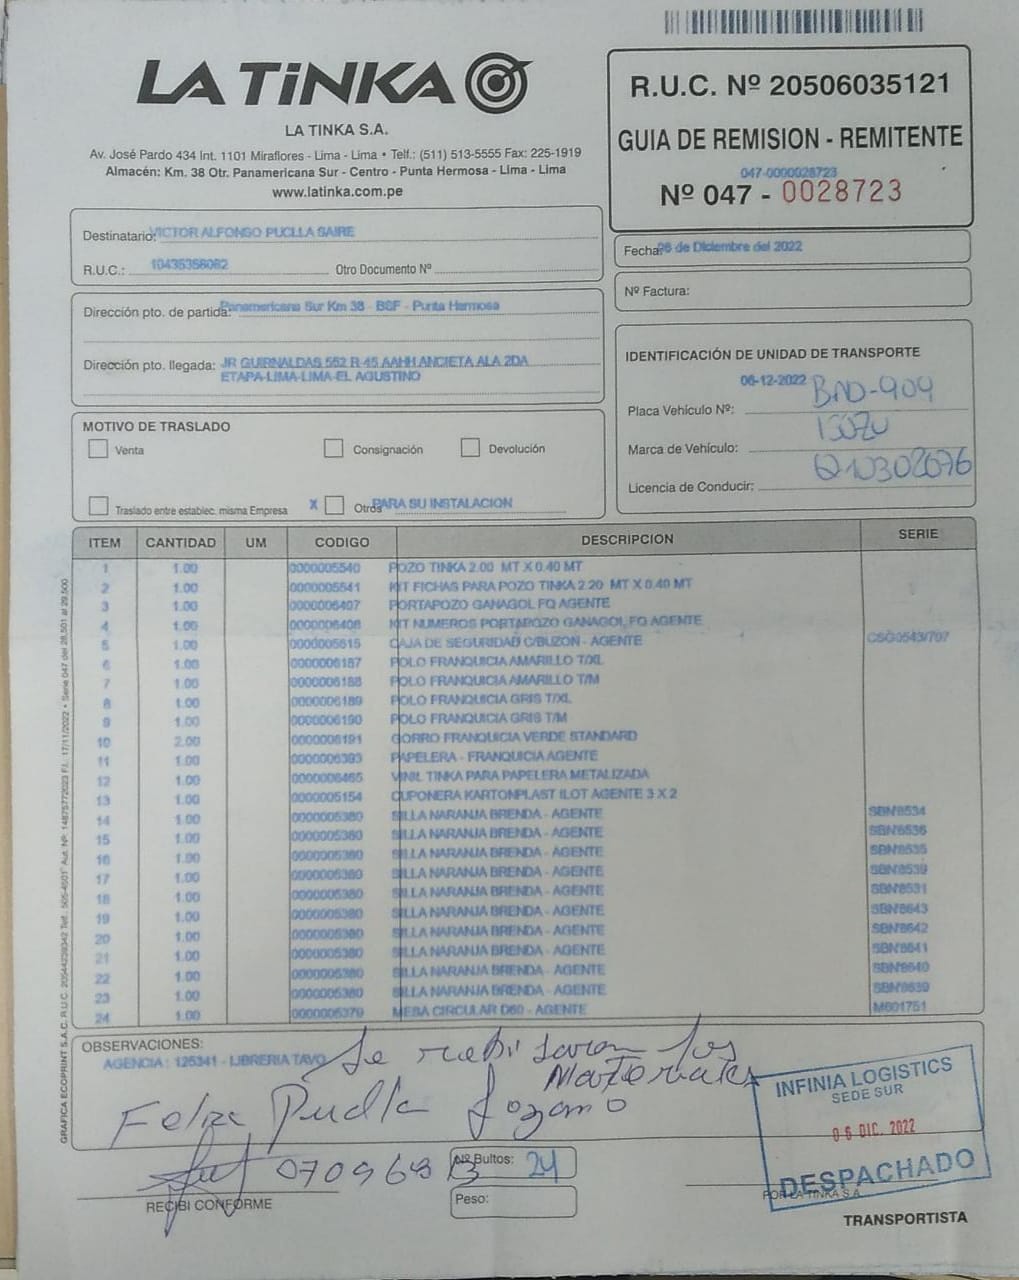 LA TiNKA
LA TINKA S.A.
Av. José Pardo 434 Int. 1101 Miraflores - Lima - Lima • Telf.: (511) 513-5555 Fax: 225-1919
Almacén: Km. 38 Otr. Panamericana Sur - Centro - Punta Hermosa - Lima - Lima
www.latinka.com.pe
R.U.C. Nº 20506035121
GUIA DE REMISION - REMITENTE
047-0000028723
Nº 047 - 0028723
Destinatario: VICTOR ALFONSO PUCLLA SAIRE
R.U.C.: 10435358082 Otro Documento Nº
Fecha: 06 de Diciembre del 2022
Nº Factura:
Dirección pto. de partida: Panamericana Sur Km 38 - BSF - Punta Hermosa
Dirección pto. llegada: JR GUIRNALDAS 552 R-45 AAHH ANCIETA ALA 2DA
ETAPA-LIMA-LIMA-EL AGUSTINO
IDENTIFICACIÓN DE UNIDAD DE TRANSPORTE
06-12-2022
Placa Vehículo Nº: BND-909
Marca de Vehículo: ISUZU
Licencia de Conducir: Q10302076
MOTIVO DE TRASLADO
Venta Consignación Devolución
Traslado entre establec. misma Empresa X Otros PARA SU INSTALACION
ITEM CANTIDAD UM CODIGO DESCRIPCION SERIE
1 1.00 0000005540 POZO TINKA 2.00 MT X 0.40 MT
2 1.00 0000005541 KIT FICHAS PARA POZO TINKA 2.20 MT X 0.40 MT
3 1.00 0000006407 PORTAPOZO GANAGOL FQ AGENTE
4 1.00 0000006408 KIT NUMEROS PORTAPOZO GANAGOL FQ AGENTE
5 1.00 0000005615 CAJA DE SEGURIDAD C/BUZON - AGENTE CSG0543/707
6 1.00 0000006187 POLO FRANQUICIA AMARILLO T/XL
7 1.00 0000006188 POLO FRANQUICIA AMARILLO T/M
8 1.00 0000006189 POLO FRANQUICIA GRIS T/XL
9 1.00 0000006190 POLO FRANQUICIA GRIS T/M
10 2.00 0000006191 GORRO FRANQUICIA VERDE STANDARD
11 1.00 0000006393 PAPELERA - FRANQUICIA AGENTE
12 1.00 0000006465 VINIL TINKA PARA PAPELERA METALIZADA
13 1.00 0000005154 CUPONERA KARTONPLAST ILOT AGENTE 3 X 2
14 1.00 0000005380 SILLA NARANJA BRENDA - AGENTE SBN'8534
15 1.00 0000005380 SILLA NARANJA BRENDA - AGENTE SBN'8536
16 1.00 0000005380 SILLA NARANJA BRENDA - AGENTE SBN'8535
17 1.00 0000005380 SILLA NARANJA BRENDA - AGENTE SBN'8539
18 1.00 0000005380 SILLA NARANJA BRENDA - AGENTE SBN'8531
19 1.00 0000005380 SILLA NARANJA BRENDA - AGENTE SBN'8643
20 1.00 0000005380 SILLA NARANJA BRENDA - AGENTE SBN'8642
21 1.00 0000005380 SILLA NARANJA BRENDA - AGENTE SBN'8641
22 1.00 0000005380 SILLA NARANJA BRENDA - AGENTE SBN'8640
23 1.00 0000005380 SILLA NARANJA BRENDA - AGENTE SBN'8639
24 1.00 0000005379 MESA CIRCULAR D60 - AGENTE M601751
OBSERVACIONES:
AGENCIA : 125341 - LIBRERIA TAVO
Se recibi los
Materiales
Felix Puclla Lozano
INFINIA LOGISTICS
SEDE SUR
06 DIC. 2022
DESPACHADO
RECIBI CONFORME
Nº Bultos: 24
Peso:
POR LA TINKA S.A.
TRANSPORTISTA